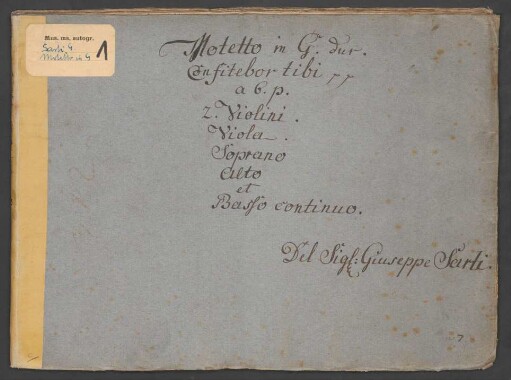 Mus. ms. autogr.
Sarti G.
Motetto in G.
1
Motetto in G. dur.
Confitebor tibi
a 6. p.
2. Violini.
Viola.
Soprano
Alto
et
Basso continuo.
Del Sigl: Giuseppe Sarti.
7